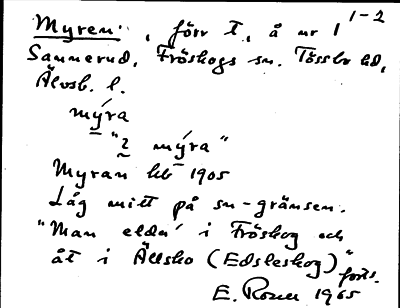 1-2
Myren , förr t. å nr 1
Sannerud, Fröskogs sn. Tössbo hd,
Älvsb. l.
mýra
"2 mýra"
Myran hb 1905
Låg mitt på sn-gränsen.
"Man eldn' i Fröskog och
åt i Ällsko (Edsleskog)"
forts.
E. Rosell 1965